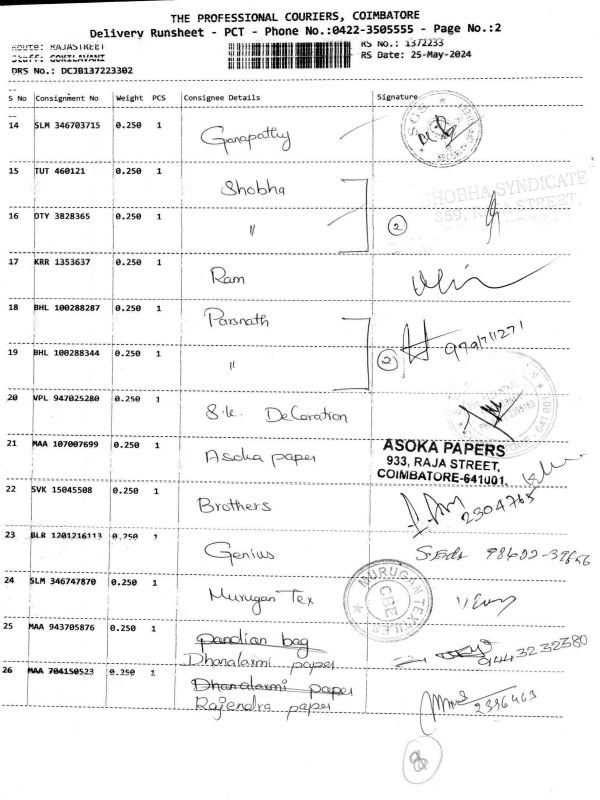 THE PROFESSIONAL COURIERS, COIMBATORE
Delivery Runsheet - PCT - Phone No.:0422-3505555 - Page No.:2
Route: RAJASTREET
RS No.: 1372233
Staff: GOKILAVANI
RS Date: 25-May-2024
DRS No.: DCJB137223302
S No Consignment No Weight PCS Consignee Details Signature
14 SLM 346703715 0.250 1 Ganapathy
SGS
15 TUT 460121 0.250 1 Shobha
SHOBHA SYNDICATE
859, RAJA STREET,
16 OTY 3828365 0.250 1 "
2
17 KRR 1353637 0.250 1 Ram
18 BHL 100288287 0.250 1 Parsnath
19 BHL 100288344 0.250 1 "
2
20 VPL 947025280 0.250 1 S.K. Decoration
641001
21 MAA 107007699 0.250 1 Asoka paper
ASOKA PAPERS
933, RAJA STREET,
COIMBATORE-641001.
22 SVK 15045508 0.250 1 Brothers
2304765
23 BLR 1201216113 0.250 1 Genius
24 SLM 346747870 0.250 1 Murugan Tex
MURUGAN TEXTILES
CBE
25 MAA 943705876 0.250 1 Pandian bag
Dhanalaxmi paper
9443232380
26 MAA 704150523 0.250 1 Dhanalaxmi paper
Rajendra paper
2396463
8